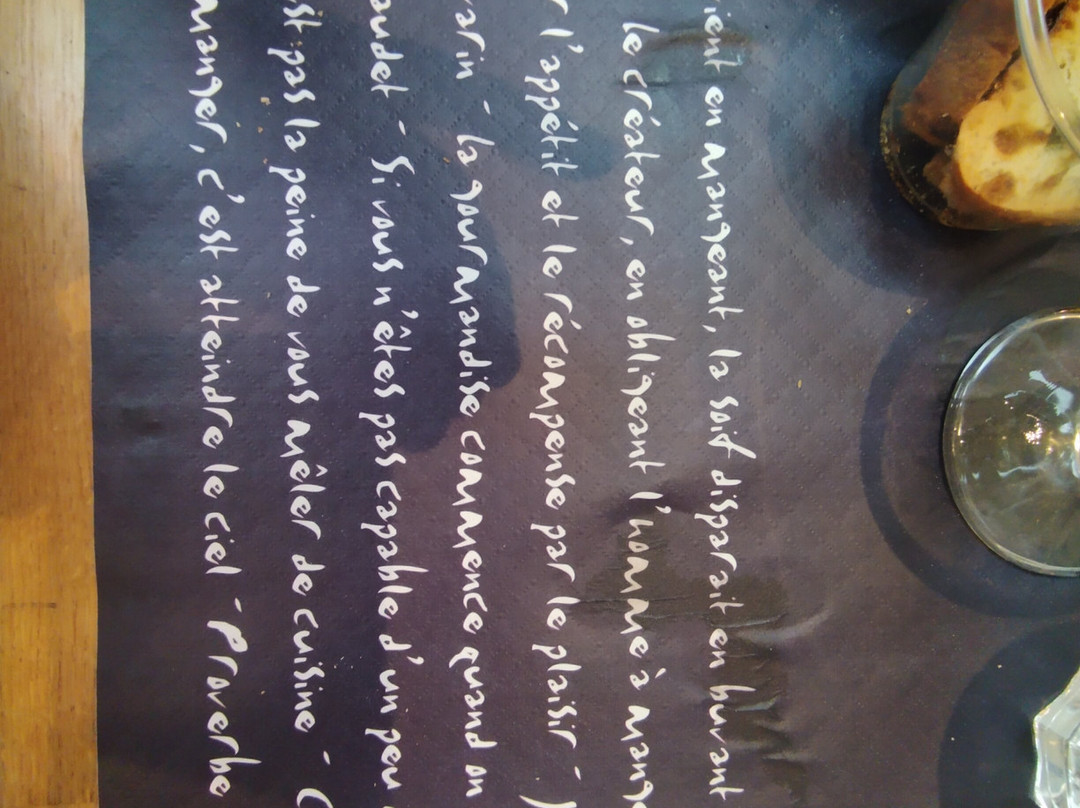 ient en mangeant, la soif disparait en buvant
le créateur, en obligeant l'homme à mange
r l'appétit et le récompense par le plaisir -
arin - la gourmandise commence quand on
audet - Si vous n'êtes pas capable d'un peu
st pas la peine de vous mêler de cuisine - C
manger, c'est atteindre le ciel - Proverbe